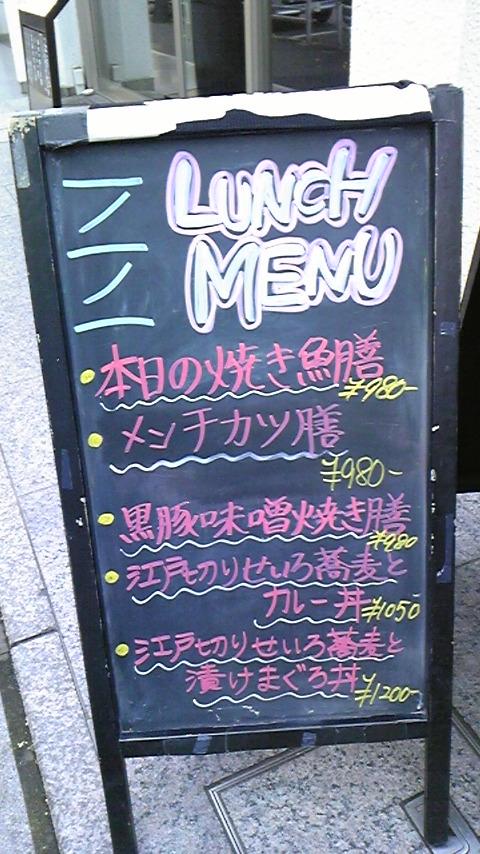 LUNCH
MENU
本日の焼き魚膳
¥980-
メンチカツ膳
¥980-
黒豚味噌焼き膳
¥980
江戸切りせいろ蕎麦と
カレー丼 ¥1050
江戸切りせいろ蕎麦と
漬けまぐろ丼
¥1200-